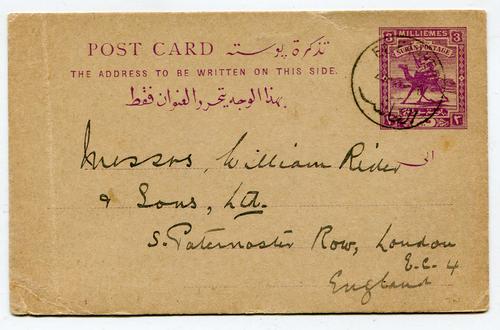 POST CARD تذكرة بوسته
THE ADDRESS TO BE WRITTEN ON THIS SIDE.
بهذا الوجه يتحرر العنوان فقط
3 MILLIEMES 3
SUDAN POSTAGE
الى
Messrs, William Rider
& Sons, Ltd.
8. Paternoster Row, London
E.C. 4
England